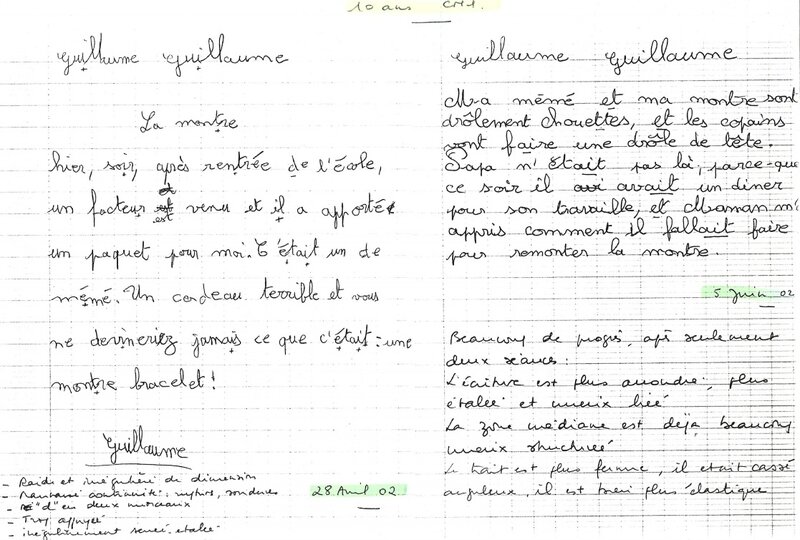 10 ans CM1.
Guillaume Guillaume
La montre
hier, soir, après rentrée de l'école,
un facteur est venu et il a apporté
un paquet pour moi. C'était un de
mémé. Un cardeau terrible et vous
ne devineriez jamais ce que c'était : une
montre bracelet !
Guillaume
- Raide et irrégulière de dimension
- Mauvaise continuité :
- "d" en deux morceaux
- Trop appuyée
- irrégulièrement serrée-étalée
28 Avril 02.
Guillaume Guillaume
Ma mémé et ma montre sont
drôlement chouettes, et les copains
vont faire une drôle de tête.
Papa n'était pas là, parce-que
ce soir il avait un diner
pour son travaille, et Maman m'
appris comment il fallait faire
pour remonter la montre.
5 Juin 02
Beaucoup de progrès, après seulement
deux séances :
L'écriture est plus arrondie, plus
étalée et mieux liée
La zone médiane est déjà beaucoup
mieux structurée
Le trait est plus ferme, il était cassé
anguleux, il est bien plus élastique